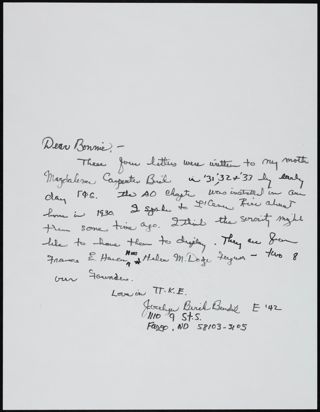 Dear Bonnie: -
These four letters were written to my mother
Magdalena Carpenter Birch in '31, '32 & '33 by early
day The AO Chapter was installed in our
home in 1930. I spoke to about
them some time ago. I think the sorority might
like to have them to display. They are from
Frances E. & Helen M. Dodge - two of
our founders.
Love in Π.K.Σ.
Jocelyn Birch E '42
1110 9 St S.
Fargo, ND 58103-3105